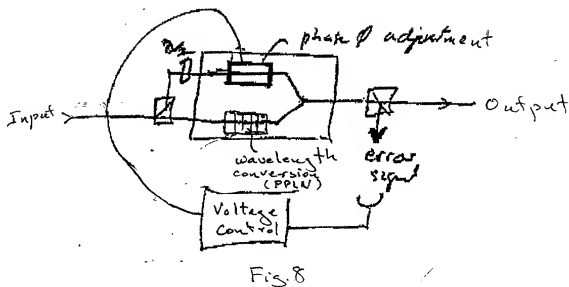 phase φ adjustment
Input
Output
wavelength
conversion
(PPLN)
error
signal
Voltage
control
Fig. 8